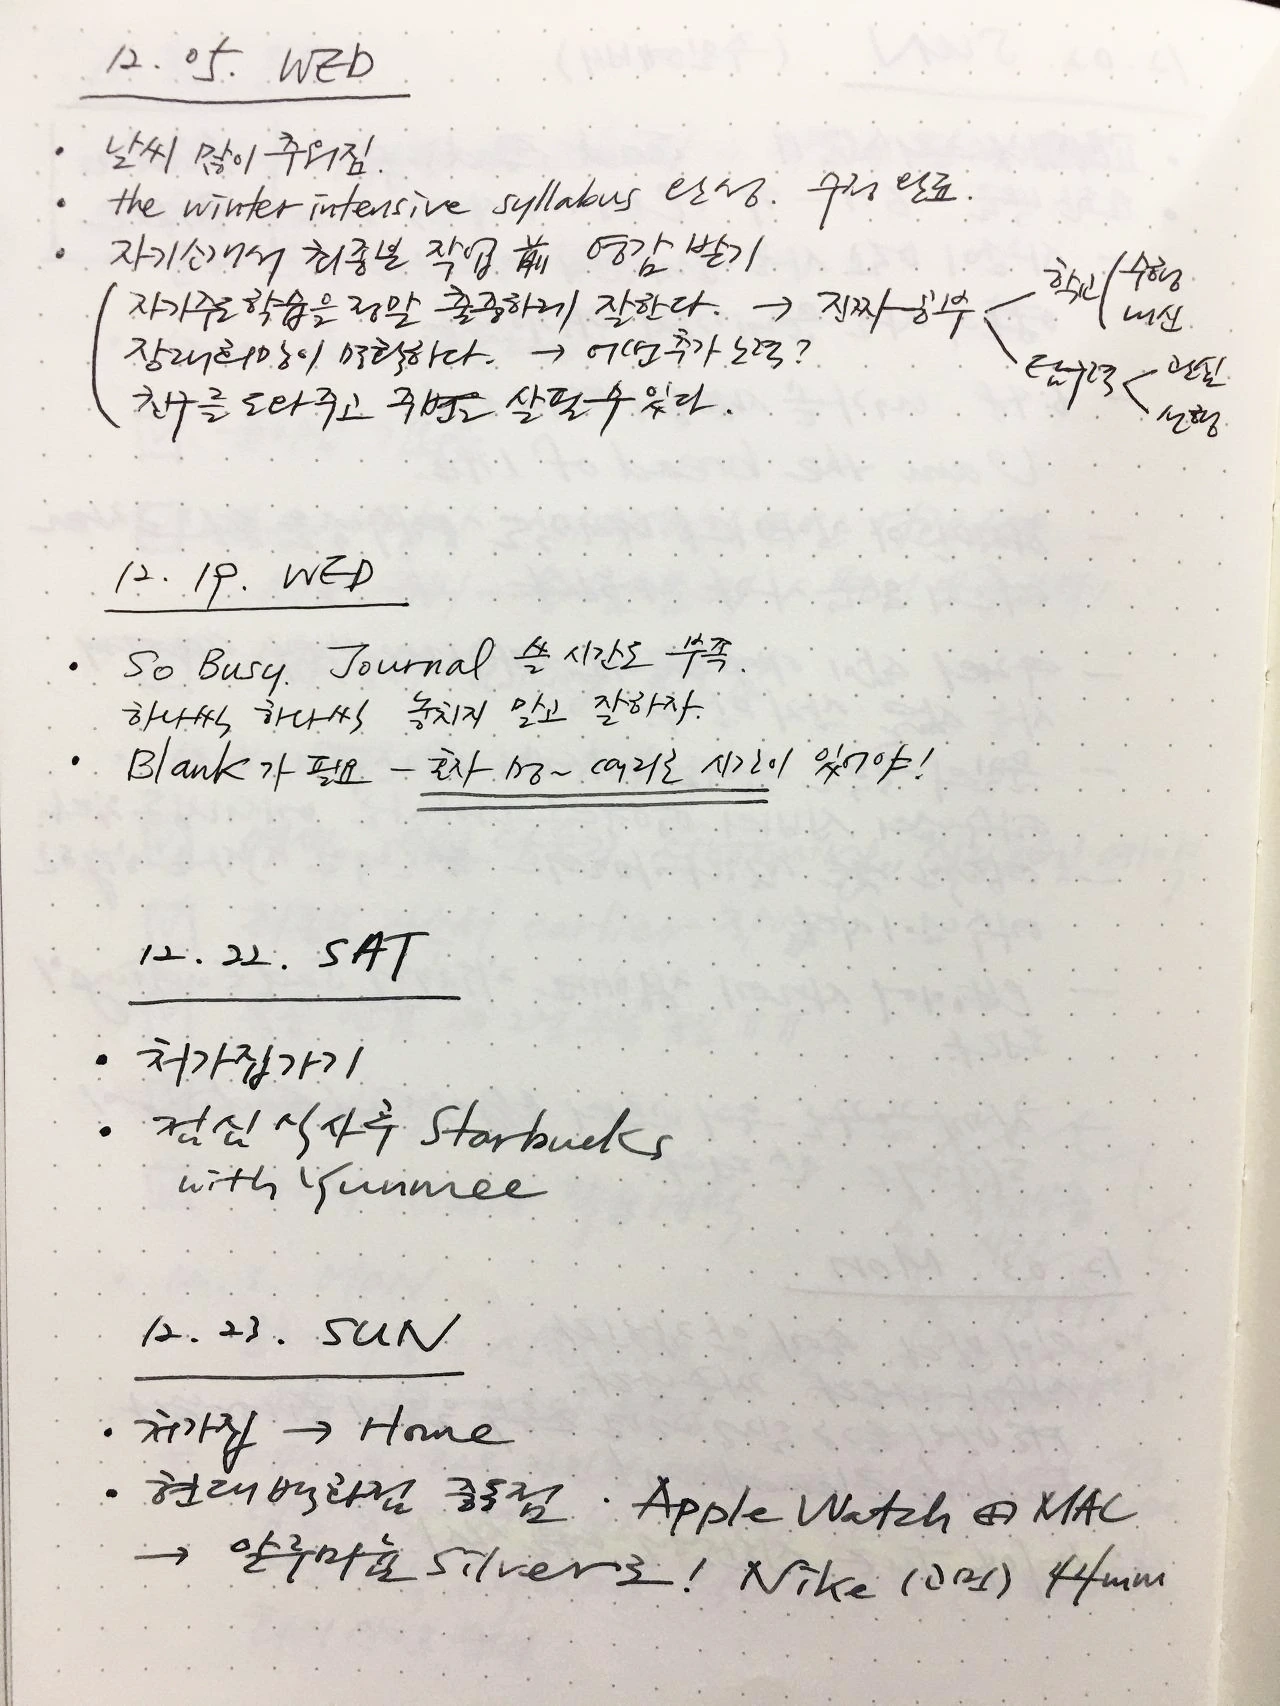 12. 05. WED
• 날씨 많이 추워짐.
• the winter intensive syllabus 완성. 수정 완료.
• 자기소개서 최종본 작업 前 영감 받기
자기주도학습을 정말 출중하게 잘한다. → 진짜 공부
학교 수행
내신
탐구력 관심
선행
장래희망이 명확하다. → 어떤 추가 노력?
친구를 도와주고 주변을 살필 수 있다.
12. 19. WED
• So Busy. Journal 쓸 시간도 부족.
하나씩 하나씩 놓치지 말고 잘하자.
• Blank가 필요 – 혼자 멍~ 때리는 시간이 있어야!
12. 22. SAT
• 처가집가기
• 점심 식사후 Starbucks
with Yunmee
12. 23. SUN
• 처가집 → Home
• 현대백화점 중동점 · Apple Watch ⊕ MAC
→ 알루미늄 Silver로! Nike (고민) 44mm